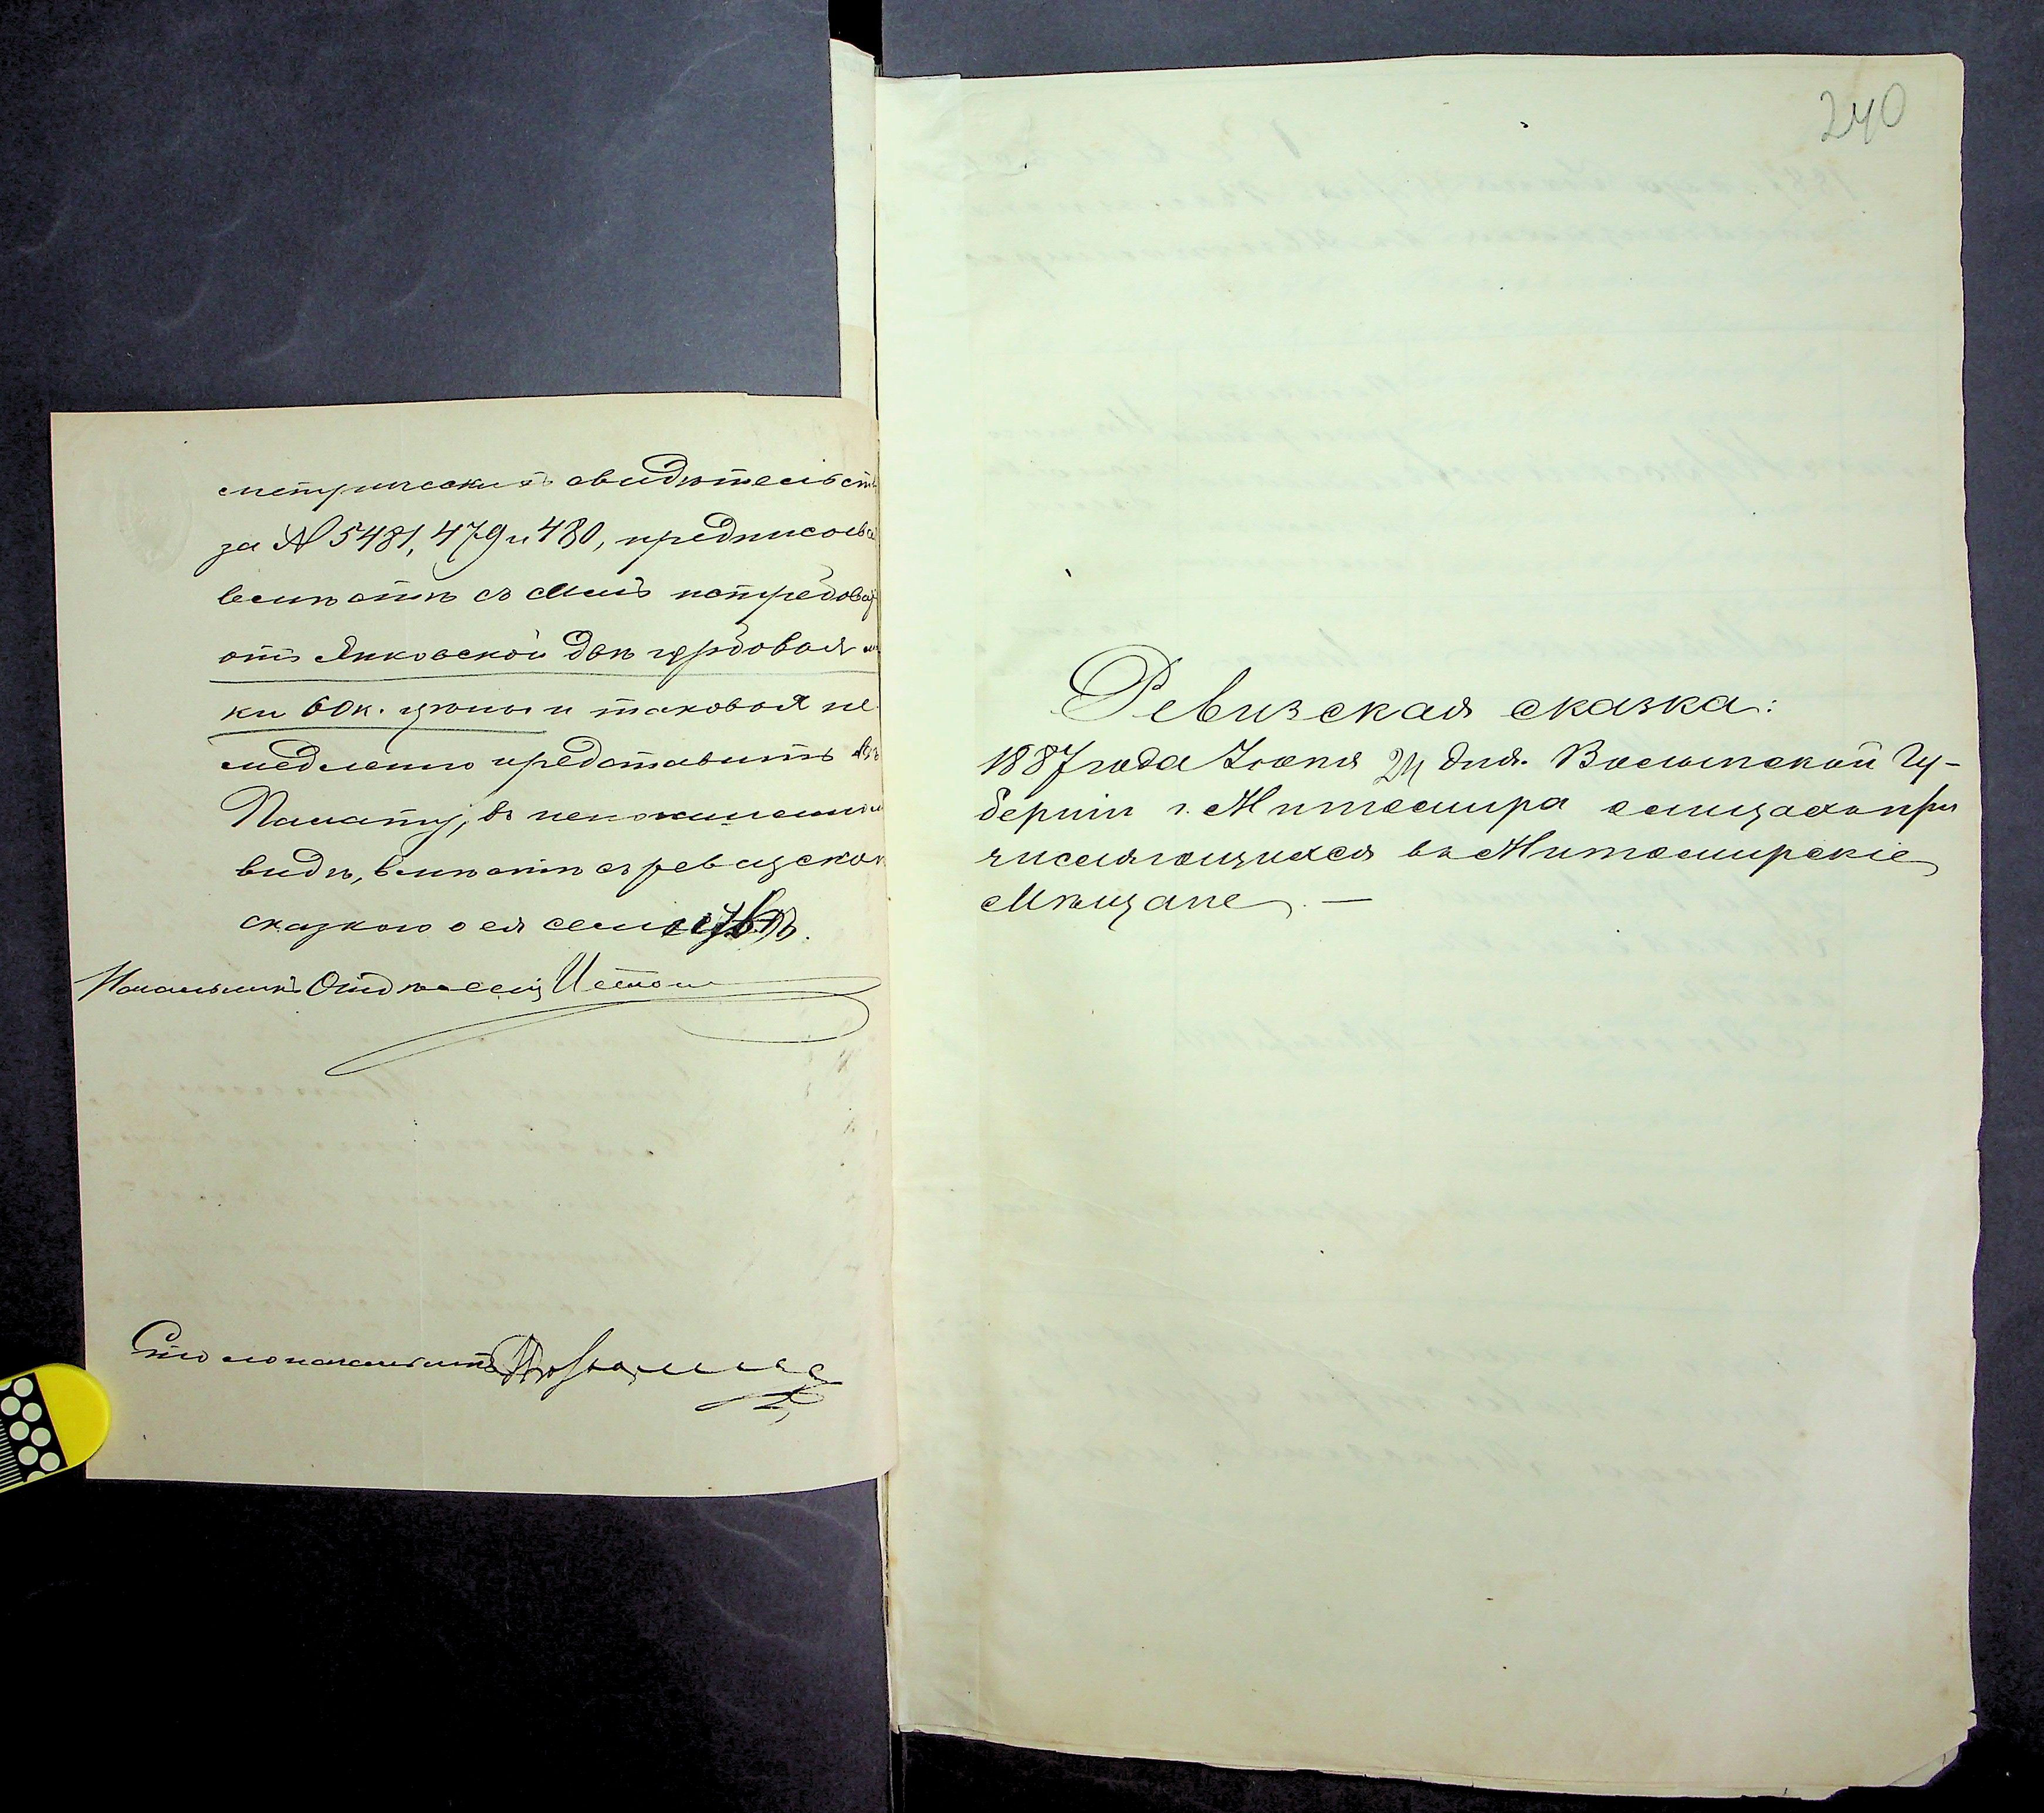 метрическихъ свидѣтельств
за № 5481, 479 и 480, предписыва
вмѣстѣ съ симъ потребова
отъ Янковской двѣ гербовыя м
ки 60 к. цѣны и таковыя не
медленно представить въ
Палату, въ неподклеенномъ
видѣ, вмѣстѣ съ ревизской
сказкою о ея семействѣ.
Начальникъ Отдѣленія
Столоначальникъ
240
Ревизская сказка:
1887 года Іюня 24 дня. Волынской Гу-
берніи г. Житомира о лицахъ при
числяющихся въ Житомирскіе
Мѣщане. —